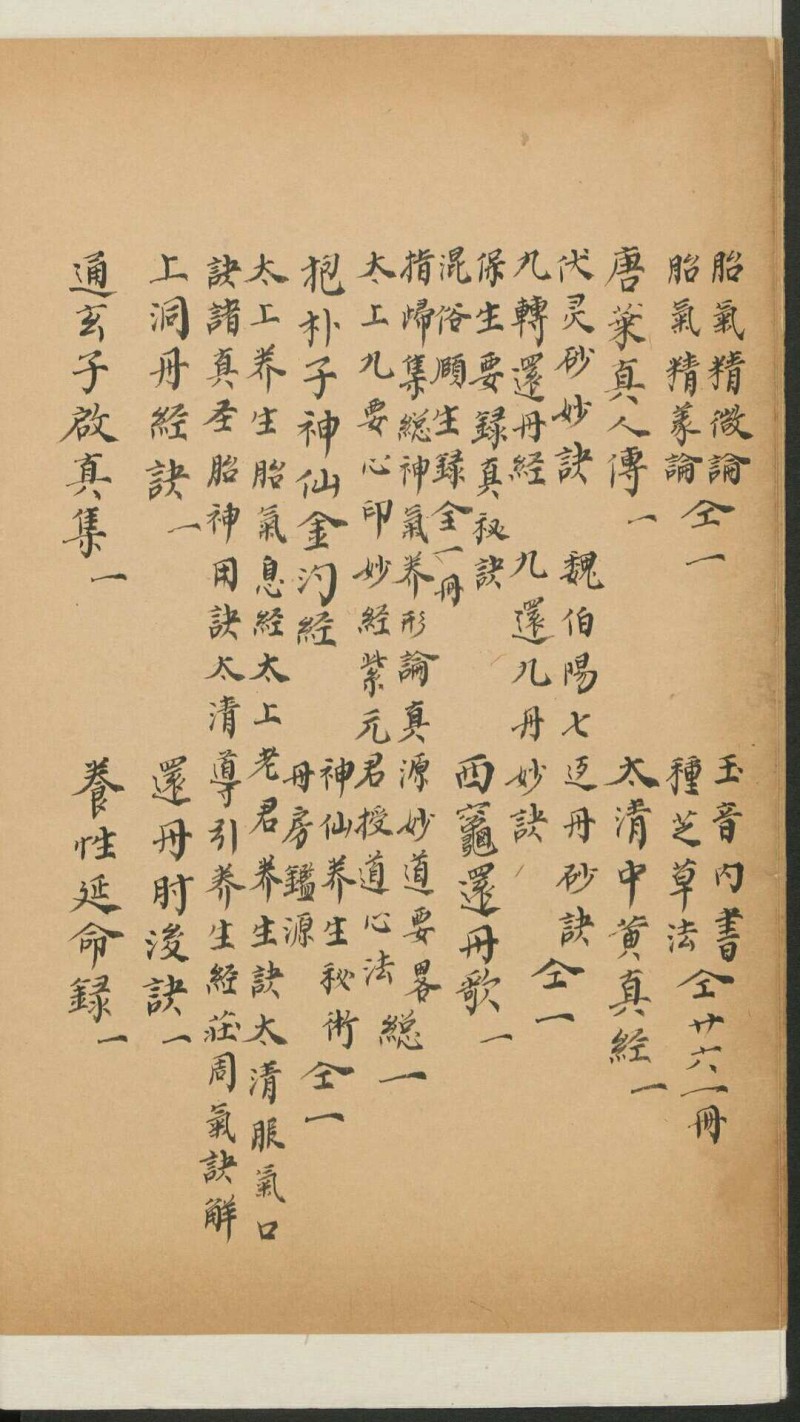 胎氣精微論
胎氣精義論 仝一
玉音內書
種芝草法 仝廿六一冊
唐葉真人傳一
太清中黃真经一
伏灵砂妙訣 魏伯陽七返丹砂訣
九轉還丹经 九還九丹妙訣 仝一
保生要録真秘訣
混俗頤生録 全一冊
西竈還丹歌一
指歸集總神氣养形論真源妙道要畧
太上九要心印妙经紫元君授道心法 總一
抱朴子神仙金汋經
神仙养生秘術
丹房鑑源 仝一
太上养生胎氣息经太上老君养生訣太清服氣口
訣諸真圣胎神用訣太清導引养生经莊周氣訣解
上洞丹经訣一
還丹肘後訣一
通玄子啟真集一
養性延命録一